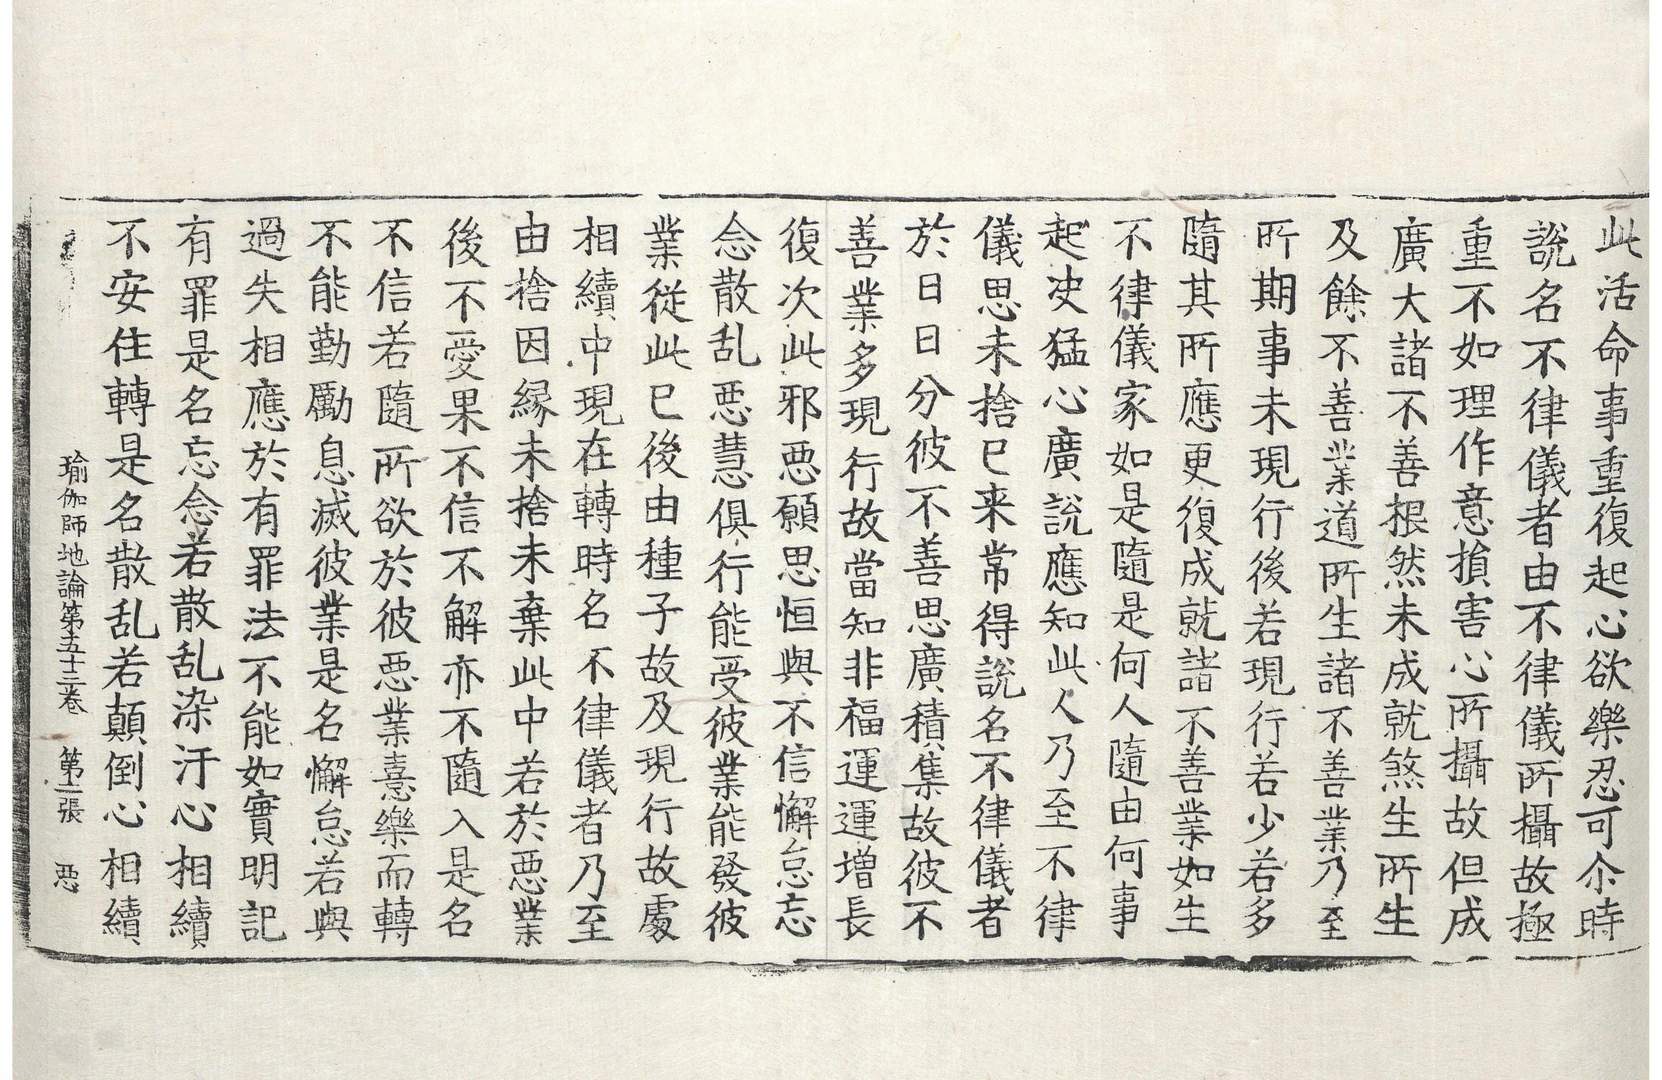 此活命事重復起心欲樂忍可尒時
說名不律儀者由不律儀所攝故極
重不如理作意損害心所攝故但成
廣大諸不善根然未成就煞生所生
及餘不善業道所生諸不善業乃至
所期事未現行後若現行若少若多
隨其所應更復成就諸不善業如生
不律儀家如是隨是何人隨由何事
起决猛心廣說應知此人乃至不律
儀思未捨已来常得說名不律儀者
於日日分彼不善思廣積集故彼不
善業多現行故當知非福運運增長
復次此邪悪願思恒與不信懈怠忘
念散乱悪慧俱行能受彼業能發彼
業從此已後由種子故及現行故處
相續中現在轉時名不律儀者乃至
由捨因縁未捨未棄此中若於悪業
後不愛果不信不解亦不隨入是名
不信若隨所欲於彼悪業憙樂而轉
不能勤勵息滅彼業是名懈怠若與
過失相應於有罪法不能如實明記
有罪是名忘念若散乱染汙心相續
不安住轉是名散乱若顛倒心相續
瑜伽師地論第五十三卷 第二張 悪